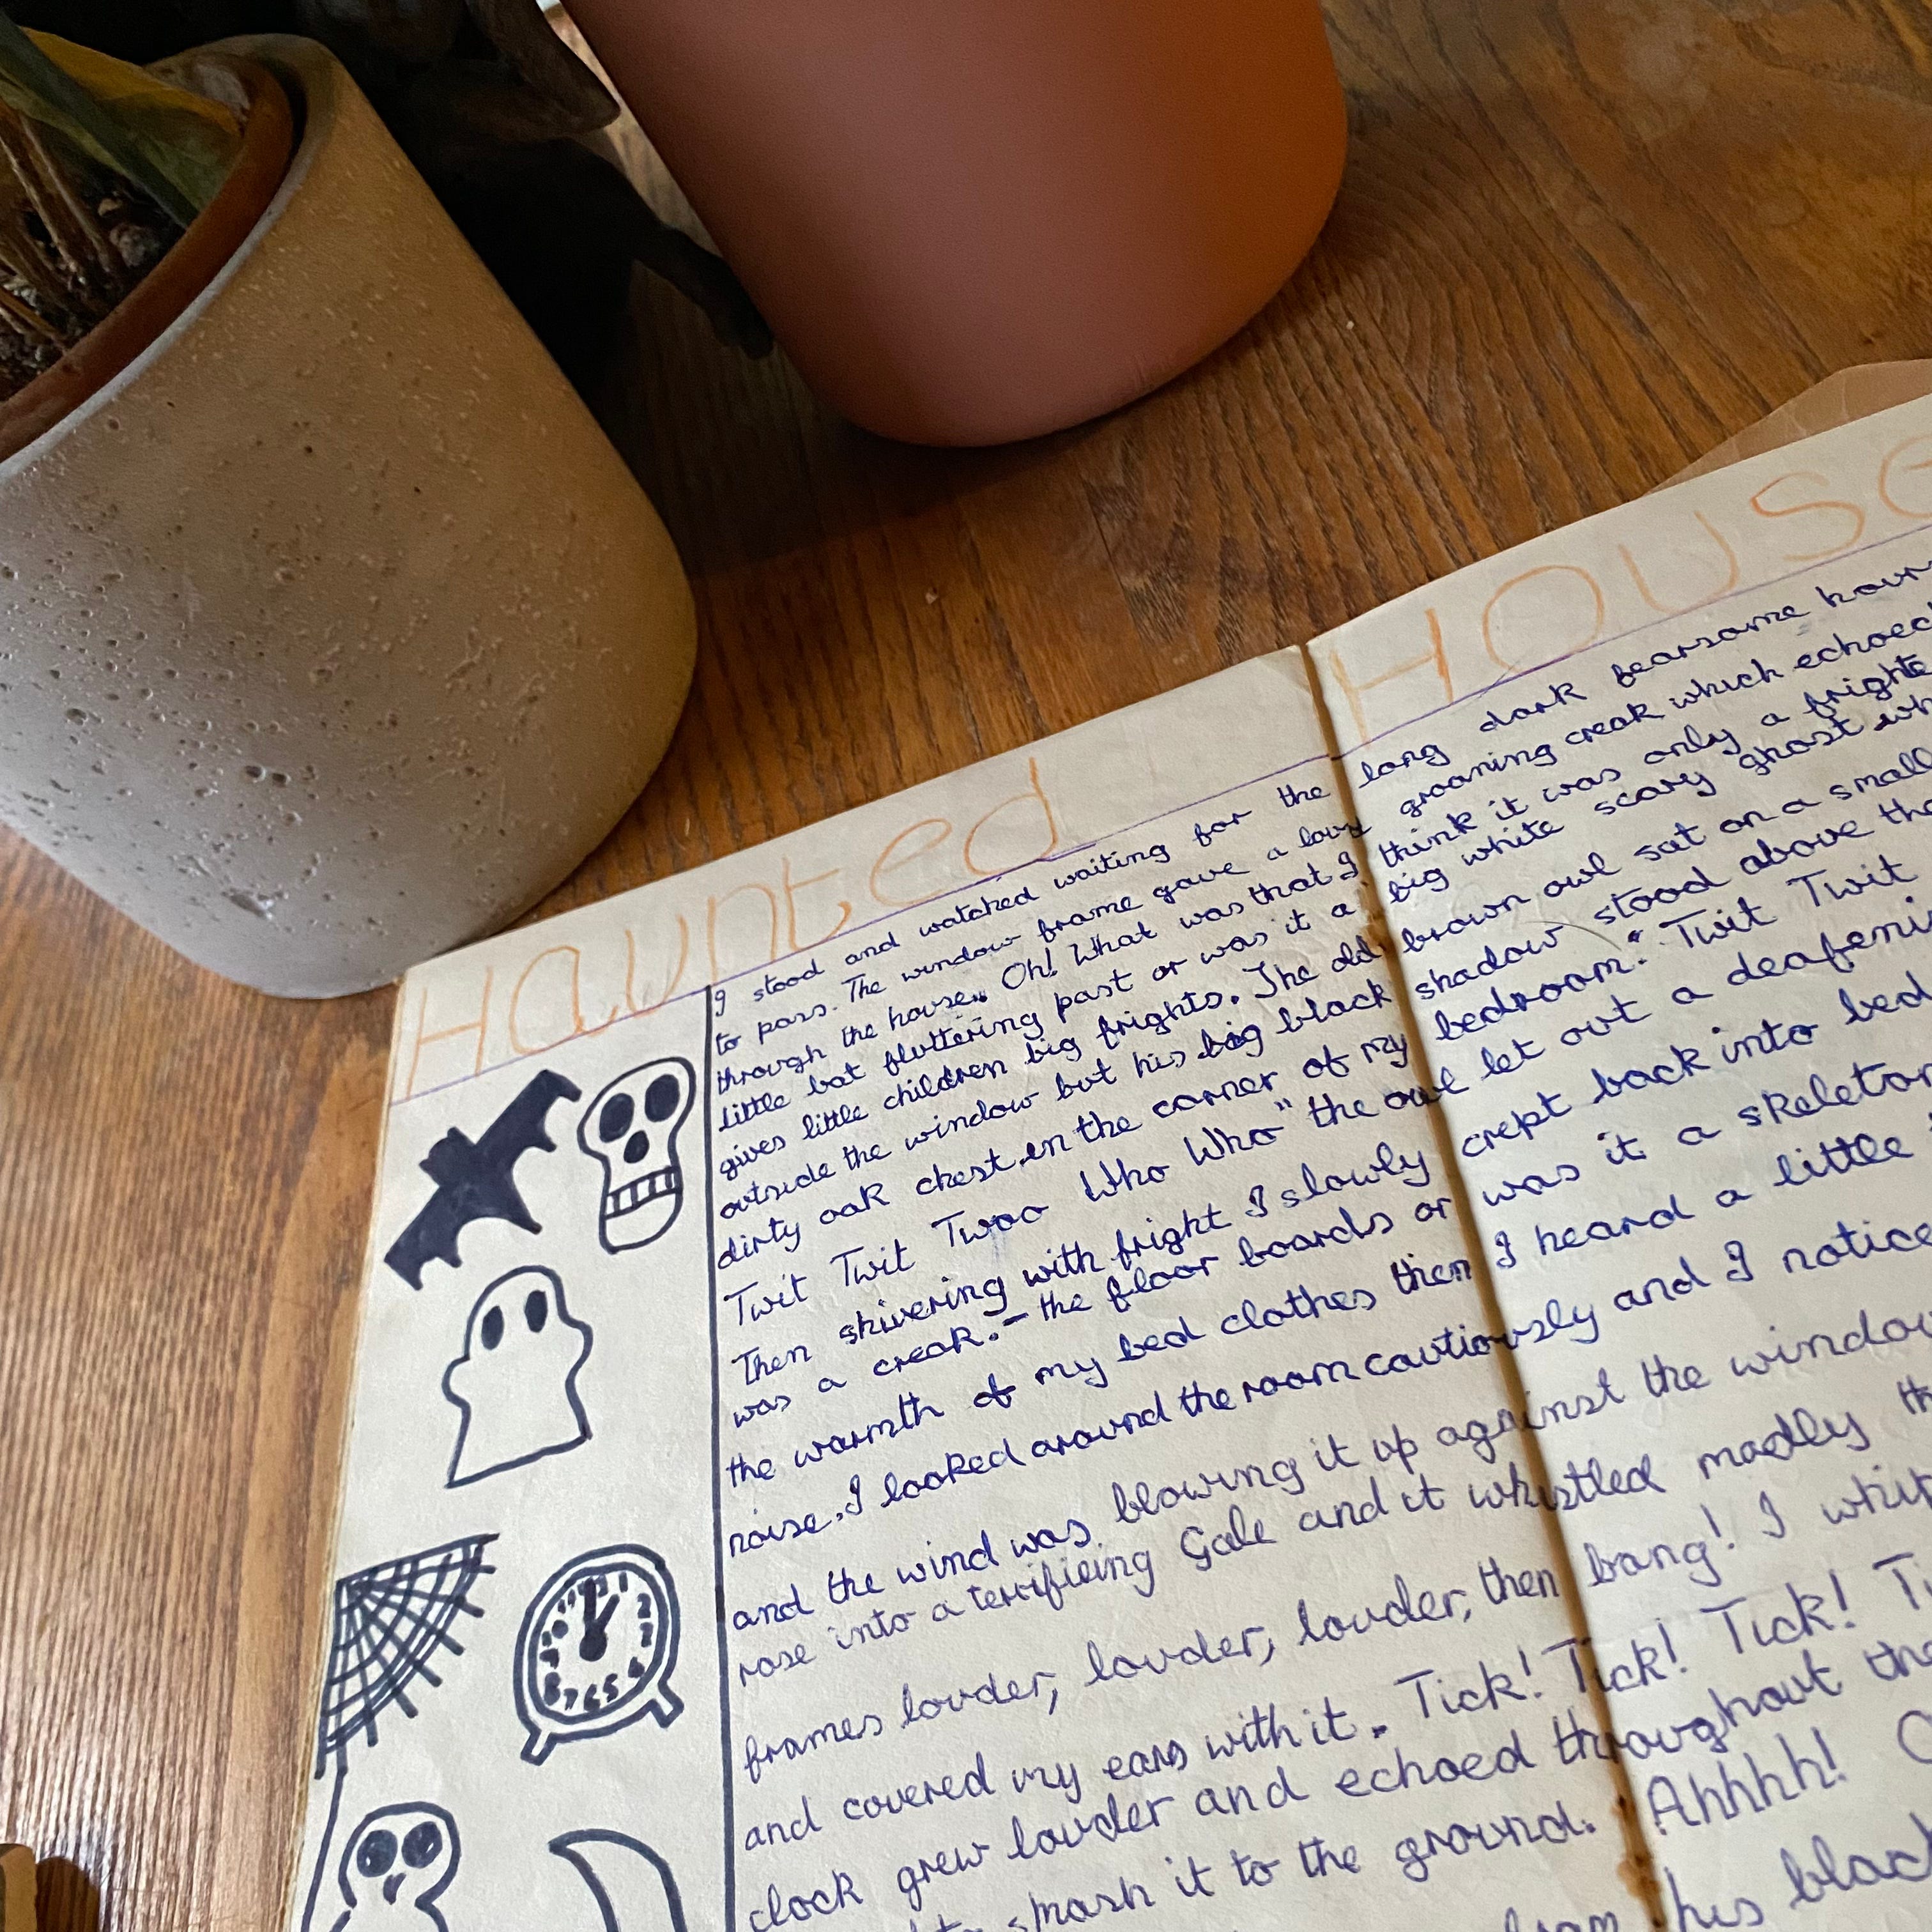 Haunted House
I stood and watched waiting for the long dark fearsome hours
to pass. The window frame gave a low groaning creak which echoed
through the house. Oh! What was that I think it was only a
little bat fluttering past or was it a big white scary ghost
gives little children big frights. The old brown owl sat on a small
outside the window but his big black shadow stood above the
dirty oak chest in the corner of my bedroom. "Twit Twit
Twit Twit Twoo Who Who" the owl let out a
Then shivering with fright I slowly crept back into bed
was a creak. - the floor boards or was it a skeleton
the warmth of my bed clothes then I heard a little
noise. I looked around the room cautiously and I
and the wind was blowing it up against the window
rose into a terrifieing Gale and it whistled madly
frames louder, louder, louder, then bang! I
and covered my ears with it. Tick! Tick! Tick!
clock grew louder and echoed throughout the
smash it to the ground. Ahhhh!
his
12
1
2
3
4
5
6
7
8
9
10
11